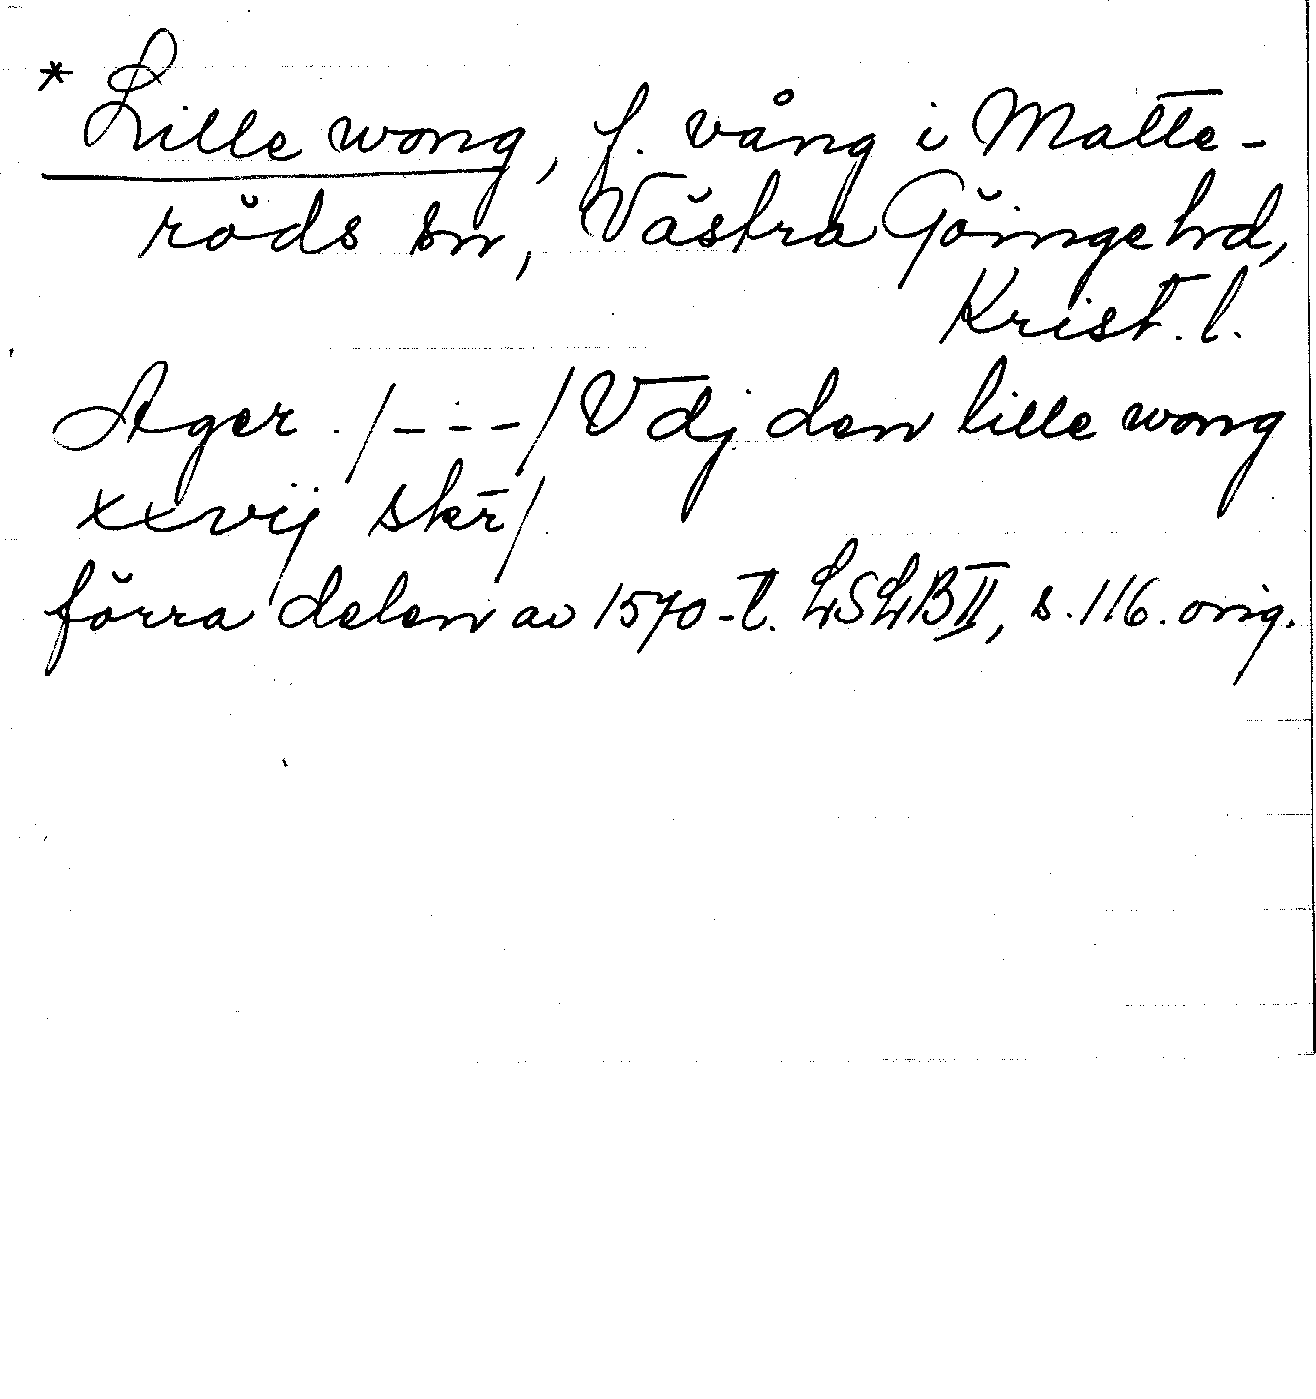 * Lille wong, f. vång i Matte-
röds sn, Västra Göinge hd,
Krist. l.
Ager . /---/ Vdj den lille wong
xxvij skr̄ /
förra delen av 1570-t. LSLB II, s. 116. orig.